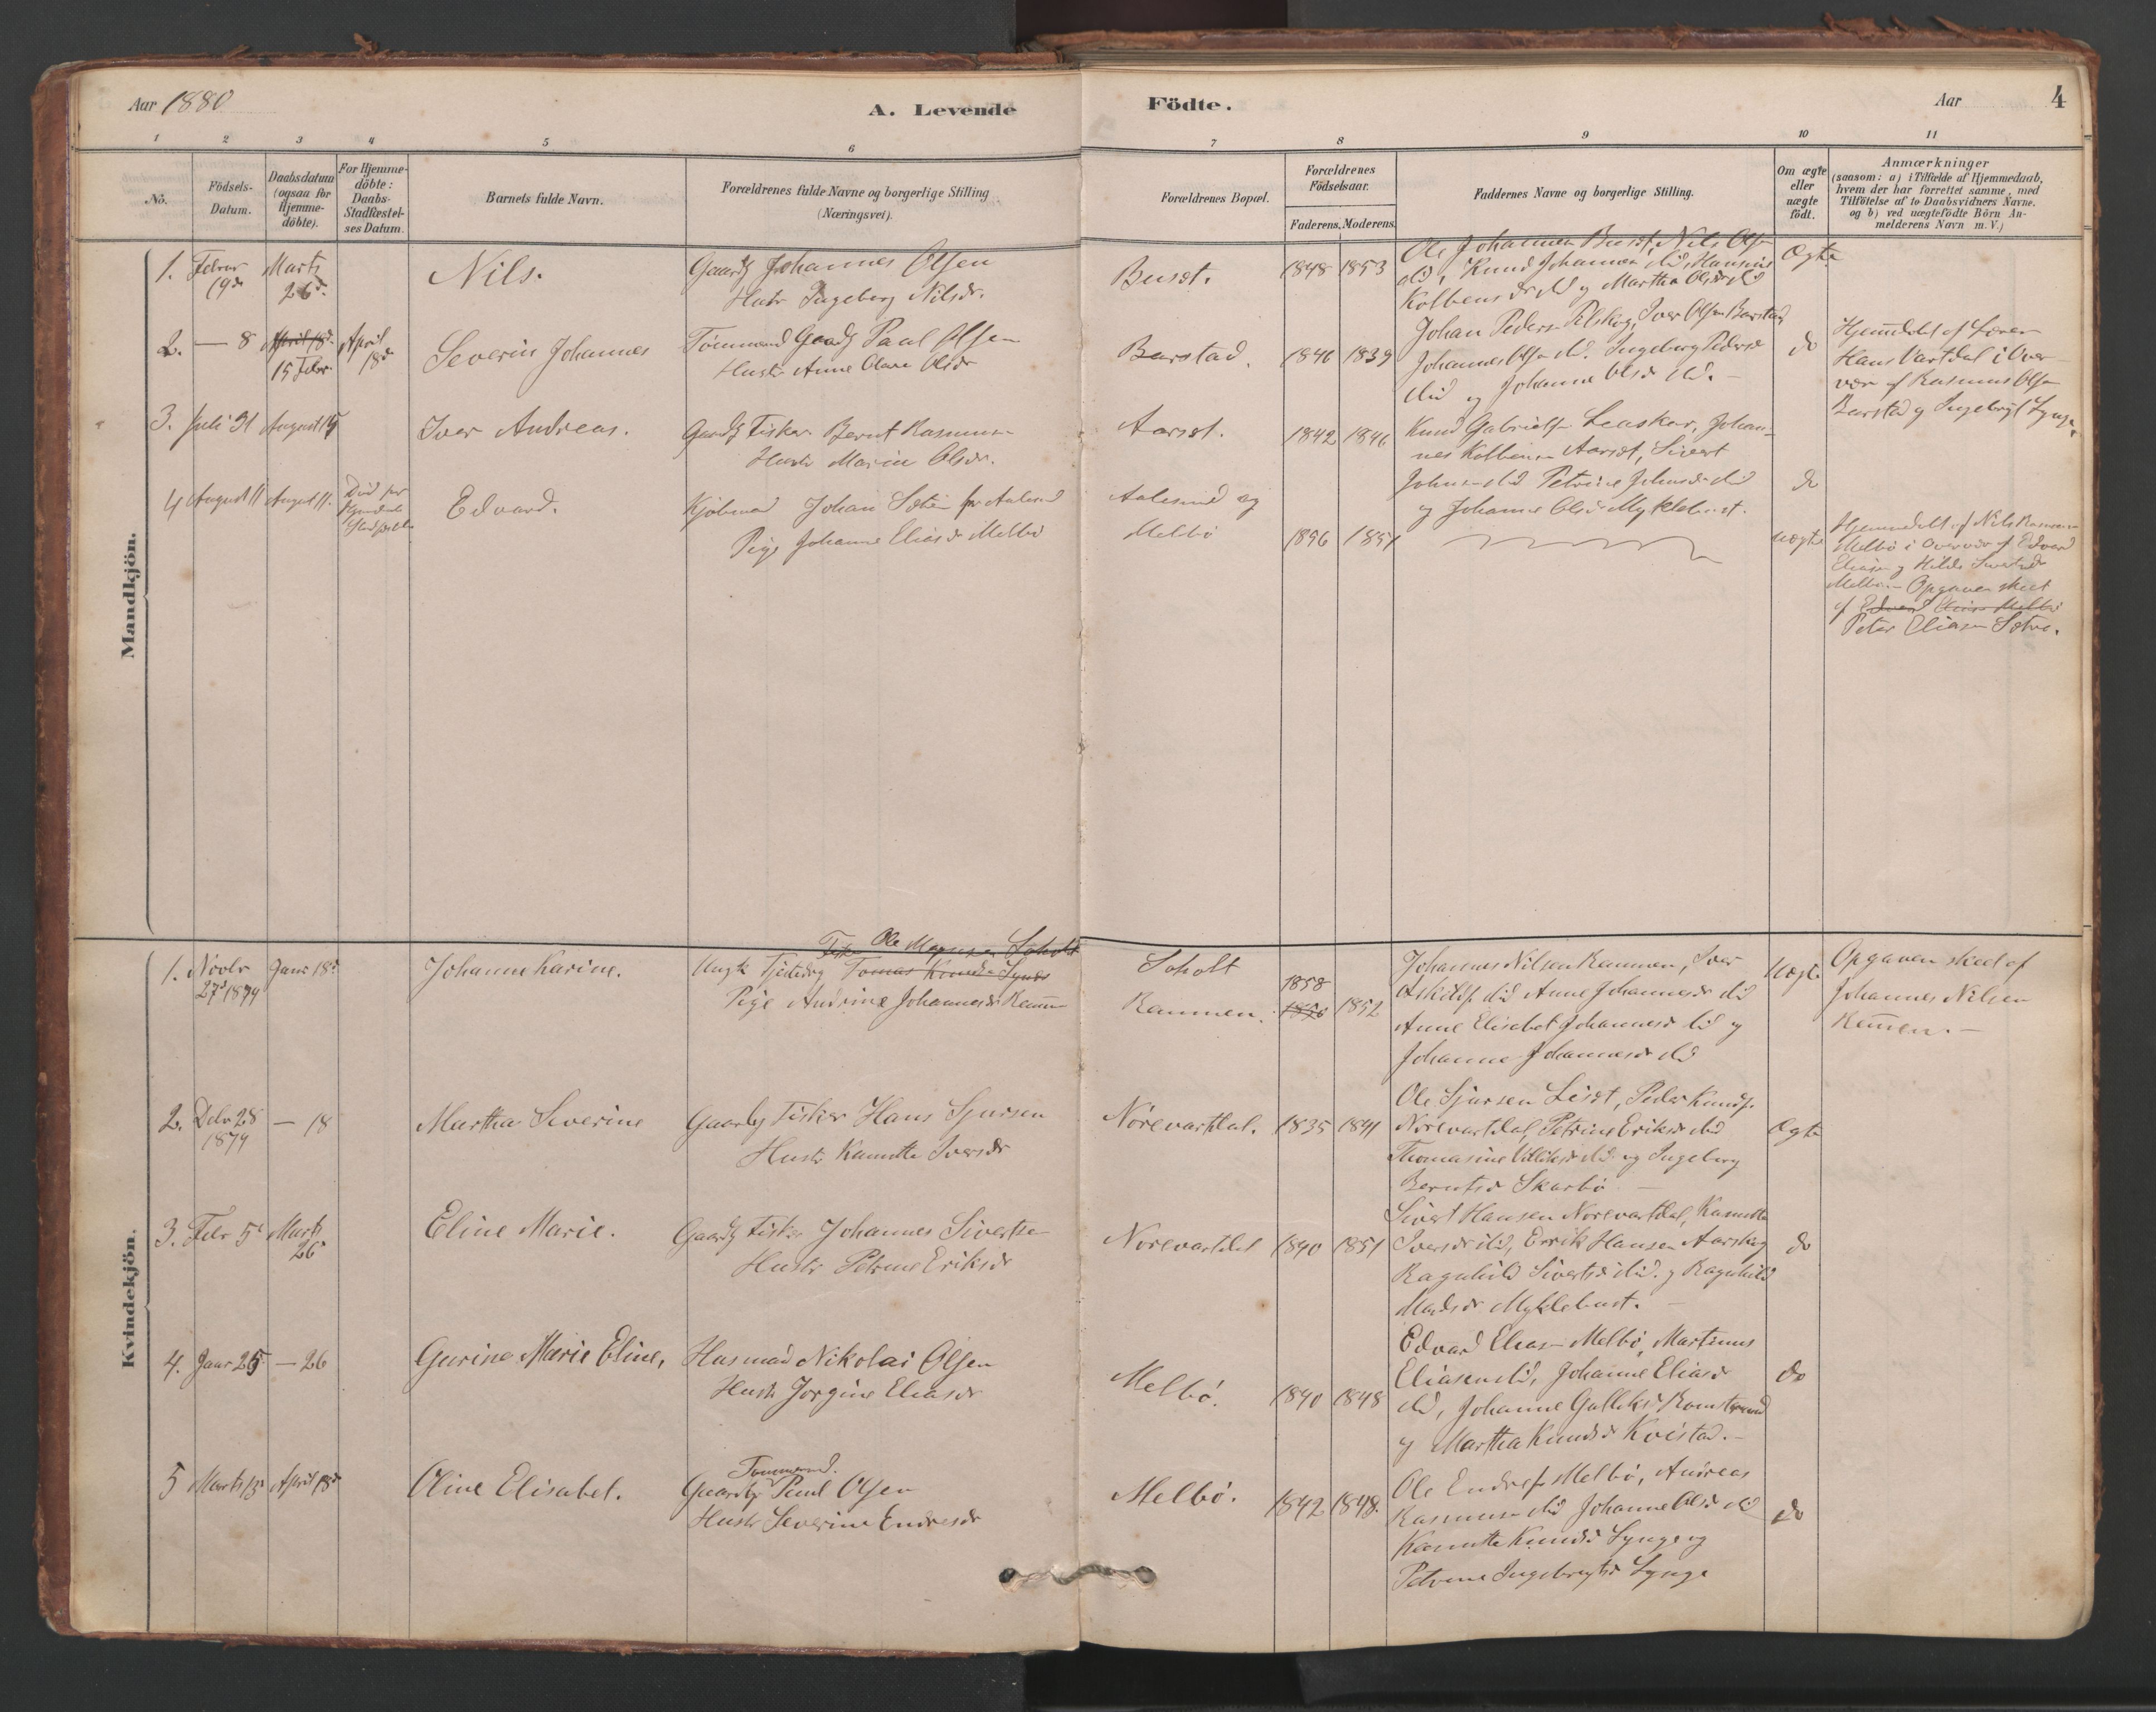 Aar 1880
A. Levende
Födte.
Aar
4
1 2 3 4 5 6 7 8 9 10 11
No.
Födsels-
Datum.
Daabsdatum
(ogsaa for
Hjemme-
döbte).
For Hjemme-
döbte:
Daabs-
Stadfæstel-
ses Datum.
Barnets fulde Navn.
Forældrenes fulde Navne og borgerlige Stilling
(Næringsvei).
Forældrenes Bopæl.
Forældrenes
Födselsaar.
Faderens. Moderens.
Faddernes Navne og borgerlige Stilling.
Om ægte
eller
uægte
födt.
Anmærkninger
(saasom: a) i Tilfælde af Hjemmedaab,
hvem der har forrettet samme, med
Tilföielse af to Daabsvidners Navne.
og b) ved uægtefödte Börn An-
melderens Navn m. V.)
Mandkjön.
1. Febr
19de
Marts
26de
Nils.
Gaardb Johannes Olsen
Hustr Ingeborg Nilsdr.
Buset.
1848 1853
Ole Johannesen Buset, Nils Olsen
did, Knud Johannesen did, Hansine
Kolbensdr did og Martha Olsdr did
Ægte
2. — 8
April 18de
15 Febr.
April
18de
Severin Johannes
Tömmermd Gaardb Paul Olsen
Hustr Anne Olave Olsdr
Barstad.
1846 1839
Johan Peders. Pilskog, Iver Olsen Barstad,
Johannes Olsen did. Ingeborg Pedersdr
did og Johanne Olsdr did. —
do
Hjemdöbt af Lærer
Hans Vartdal i Over-
vær af Rasmus Olsen
Barstad og Ingebrigt Synge.
3. Juli 31 August 15
Iver Andreas.
Gaardb Fisker Bernt Rasmusen
Hustr Marie Olsdr.
Aarset.
1842 1846
Knud Gabrielsen Leaskar, Johan-
nes Kolbensen Aarset, Sivert
Johnsen did Petrine Johnsdr did
og Johanne Olsdr Myklebust.
do
4 August 11 August 11.
Död før
Edvard.
Kjöbmand Johan Sætre fra Aalesund
Pige Johanne Eliasdr Melbö
Aalesund og
Melbö
1856 1857
uægte
Hjemmedöbt af Nils Rasmusen
Melbö i Overvær af Edvard
Eliasen og Hilde Sivertsdr
Melbö. — Opgaven skeet
af Edvard Eliasen Melbö
Peter Eliasen Sætre.
Kvindekjön.
1. Novbr
27de 1879
Janr 18de
Johanne Karine.
Fisk Ole Mogensen Söholt
Ungk Tjstedrg Tomas Knudsen Synes
Pige Andrine Johannesdr Ramm
Söholt
Rammen.
1858
1856 1852
Johannes Nilsen Rammen, Iver
Askilds. did Anne Johannesdr did
Anne Elisabet Johannesdr did og
Johanne Johannesdr did
Uægte
Opgaven skeed af
Johannes Nilsen
Rammen. —
2. Debr 28
1879
— 18
Martha Severine
Gaardbg Fisker Hans Sjursen
Hustr Kanutte Iversdr
Nörevartdal. 1835 1841
Ole Sjursen Liset, Peder Knuds.
Nörevartdal, Petrine Eriksdr did
Thomasine Villiksdr did og Ingeborg
Berntsdr Skarbö —
Ægte
3. Febr 5te Marts
26de
Eline Marie.
Gaardb Fisker Johannes Sivertsen
Hustr Petrine Eriksdr
Nörevartdal 1840 1851
Sivert Hansen Nörevartdal, Kanutte
Iversdr did, Errik Hansen Aarskog
Ragnhild Sivertsdr did. og Ragnhild
Madsdr Myklebust. —
do
4. Janr 25 — 26
Gurine Marie Eline,
Husmand Nikolai Olsen
Hustr Jorgine Eliasdr
Melbö.
1840 1848
Edvard Eliasen Melbö, Martinus
Eliasen did, Johanne Eliasdr
did, Johanne Gulliksdr Romstrand
og Martha Knudsdr Kvistad. —
do
5 Marts 15de April 18de
Oline Elisabet.
Tömmermd.
Gaardbg Paul Olsen
Hustr Severine Endresdr
Melbö. 1842 1848.
Ole Endres. Melbö, Andreas
Rasmusen did Johanne Olsdr did
Kanutte Knudsdr Synge og
Petrine Ingebrigtsdr Synge
do